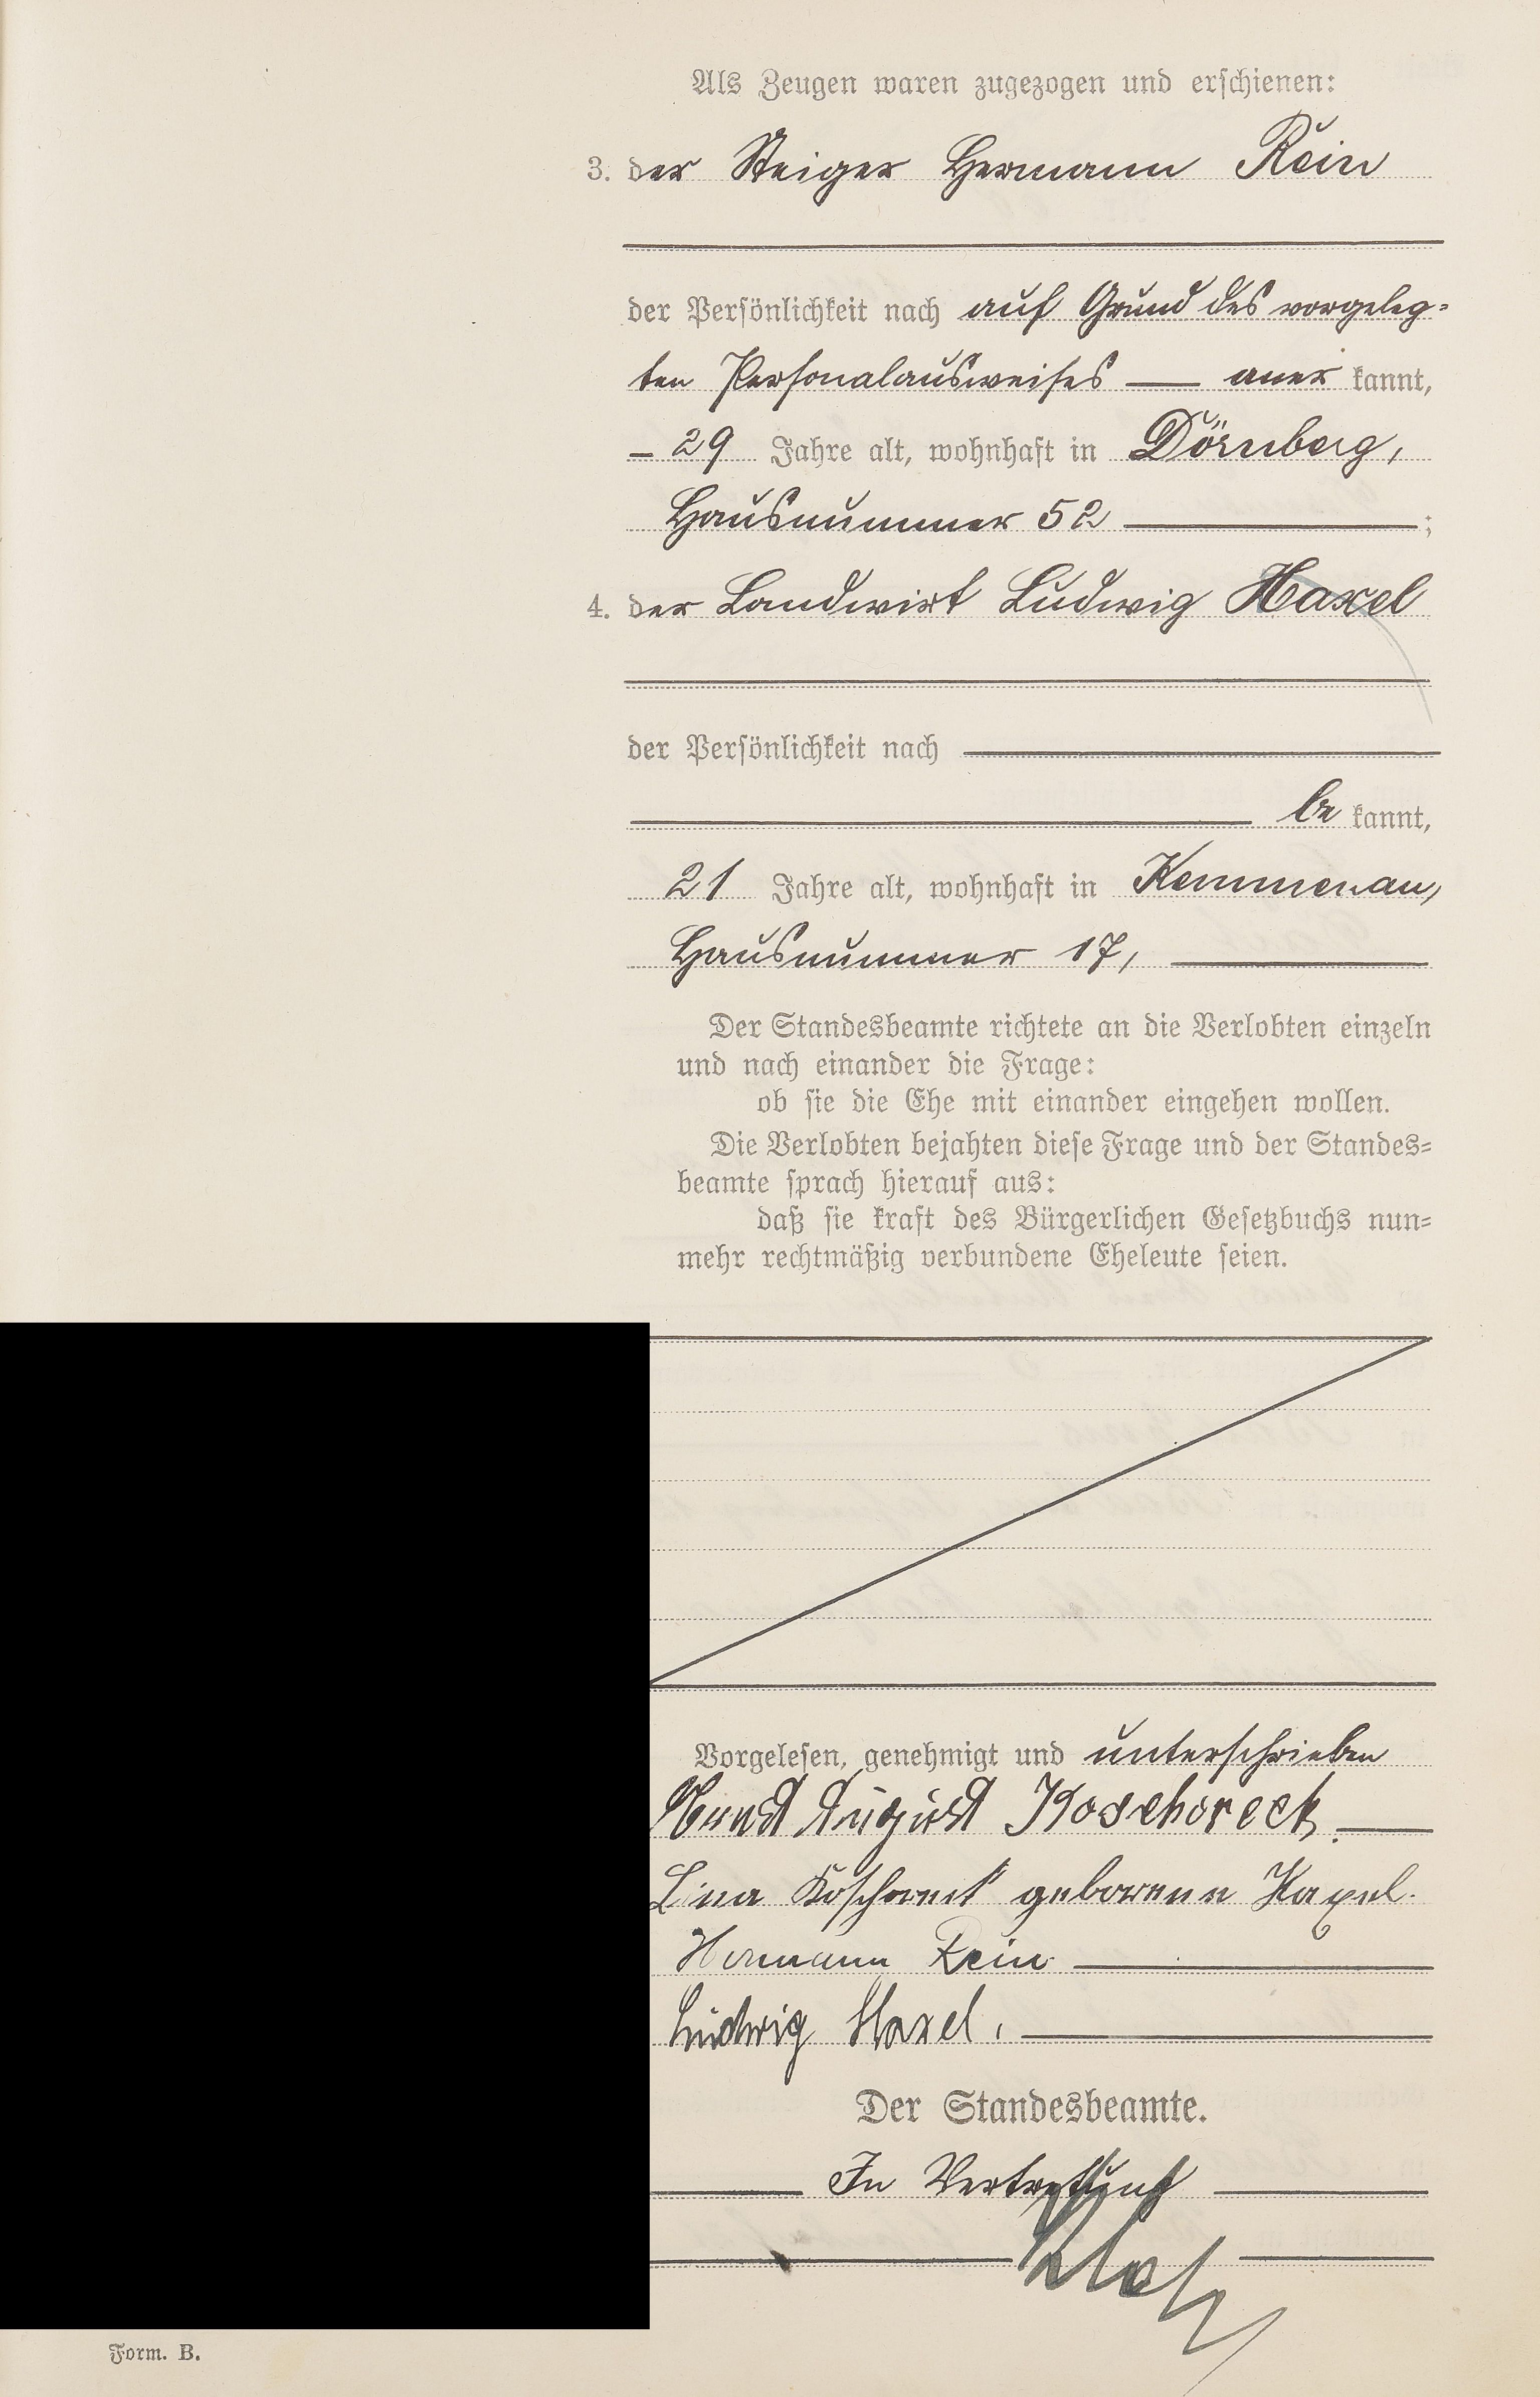 Als Zeugen waren zugezogen und erschienen:
3. der Steiger Hermann Rein
der Persönlichkeit nach auf Grund des vorgeleg-
ten Personalausweises — aner kannt,
29 Jahre alt, wohnhaft in Dörnberg,
Hausnummer 52 ;
4. der Landwirt Ludwig Haxel
der Persönlichkeit nach
be kannt,
21 Jahre alt, wohnhaft in Kemmenau,
Hausnummer 17,
Der Standesbeamte richtete an die Verlobten einzeln
und nach einander die Frage:
ob sie die Ehe mit einander eingehen wollen.
Die Verlobten bejahten diese Frage und der Standes-
beamte sprach hierauf aus:
daß sie kraft des Bürgerlichen Gesetzbuchs nun-
mehr rechtmäßig verbundene Eheleute seien.
Vorgelesen, genehmigt und unterschrieben
August Koschoreck.
Lina Koschoreck geborene Haxel.
Hermann Rein
Ludwig Haxel.
Der Standesbeamte.
In Vertretung
Form. B.